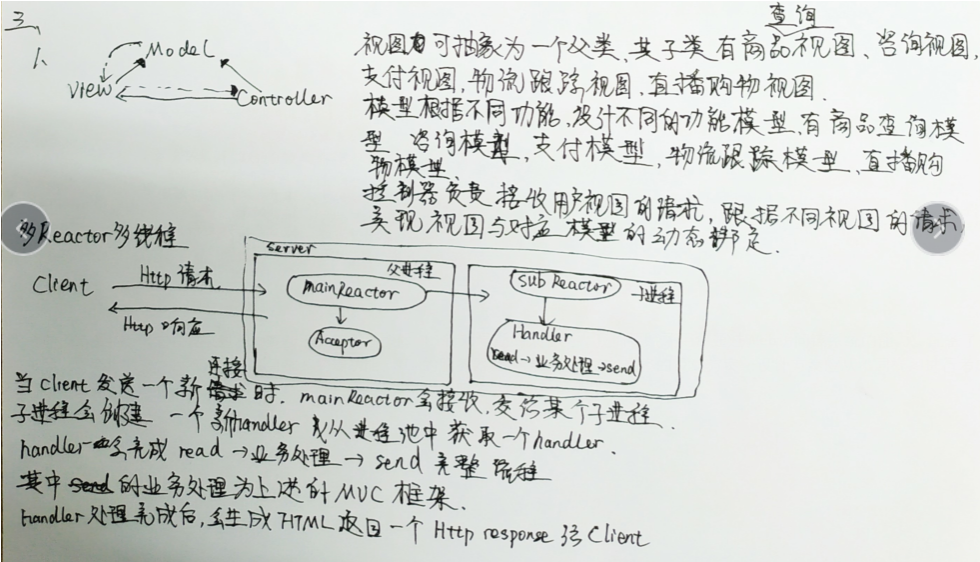 三、
1、
Model
View
Controller
查询
视图可抽象为一个父类、其子类有商品视图、咨询视图,
支付视图,物流跟踪视图、直播购物视图.
模型根据不同功能,设计不同的功能模型、有商品查询模
型 咨询模型,支付模型,物流跟踪模型、直播购
物模型.
控制器负责接收用户视图的请求,跟据不同视图的请求,
实现视图与对应模型的动态绑定.
多Reactor多线程
server
父进程
子进程
Client
Http 请求
mainReactor
sub Reactor
Http 响应
Acceptor
Handler
read→业务处理→send
连接
当Client发送一个新时.mainReactor会接收,交给某个子进程.
子进程会创建一个新handler或从进程池中获取一个handler.
handler会完成 read →业务处理→ send 完整流程
其中的业务处理为上述的MVC框架.
Handler处理完成后,会生成HTML返回一个Http response给Client